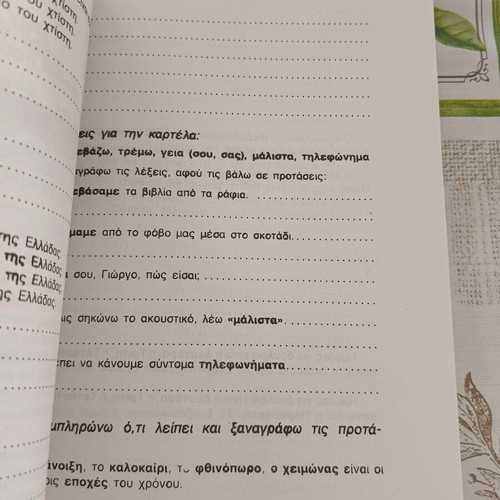 του χτίστη.
του χτίστη.
της Ελλάδας.
της Ελλάδας.
της Ελλάδας.
της Ελλάδας.
για την καρτέλα:
τρέμω, γεια (σου, σας), μάλιστα, τηλεφώνημα
τις λέξεις, αφού τις βάλω σε προτάσεις:
τα βιβλία από τα ράφια.
από το φόβο μας μέσα στο σκοτάδι.
σου, Γιώργο, πώς είσαι;
σηκώνω το ακουστικό, λέω «μάλιστα».
να κάνουμε σύντομα τηλεφωνήματα.
ό,τι λείπει και ξαναγράφω τις προτά-
το καλοκαίρι, το φθινόπωρο, ο χειμώνας είναι οι
εποχές του χρόνου.